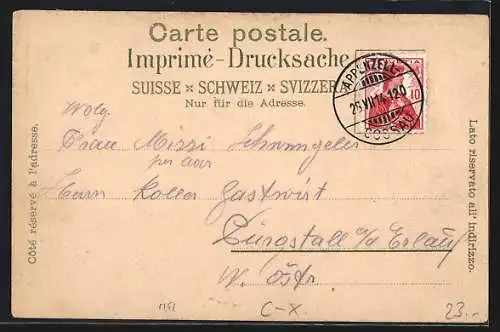 Carte postale.
Imprimé-Drucksache
SUISSE × SCHWEIZ × SVIZZERA
Nur für die Adresse.
APPENZELL-
25.VII.14.120
GOSSAU
10
Côté réservé à l'adresse.
Lato riservato all' indirizzo.
Wolg.
Frau Mizzi
per adr
Herrn Koller Gastwirt
Purgstall a/d Erlauf
N. Östr.
C-X
23.-